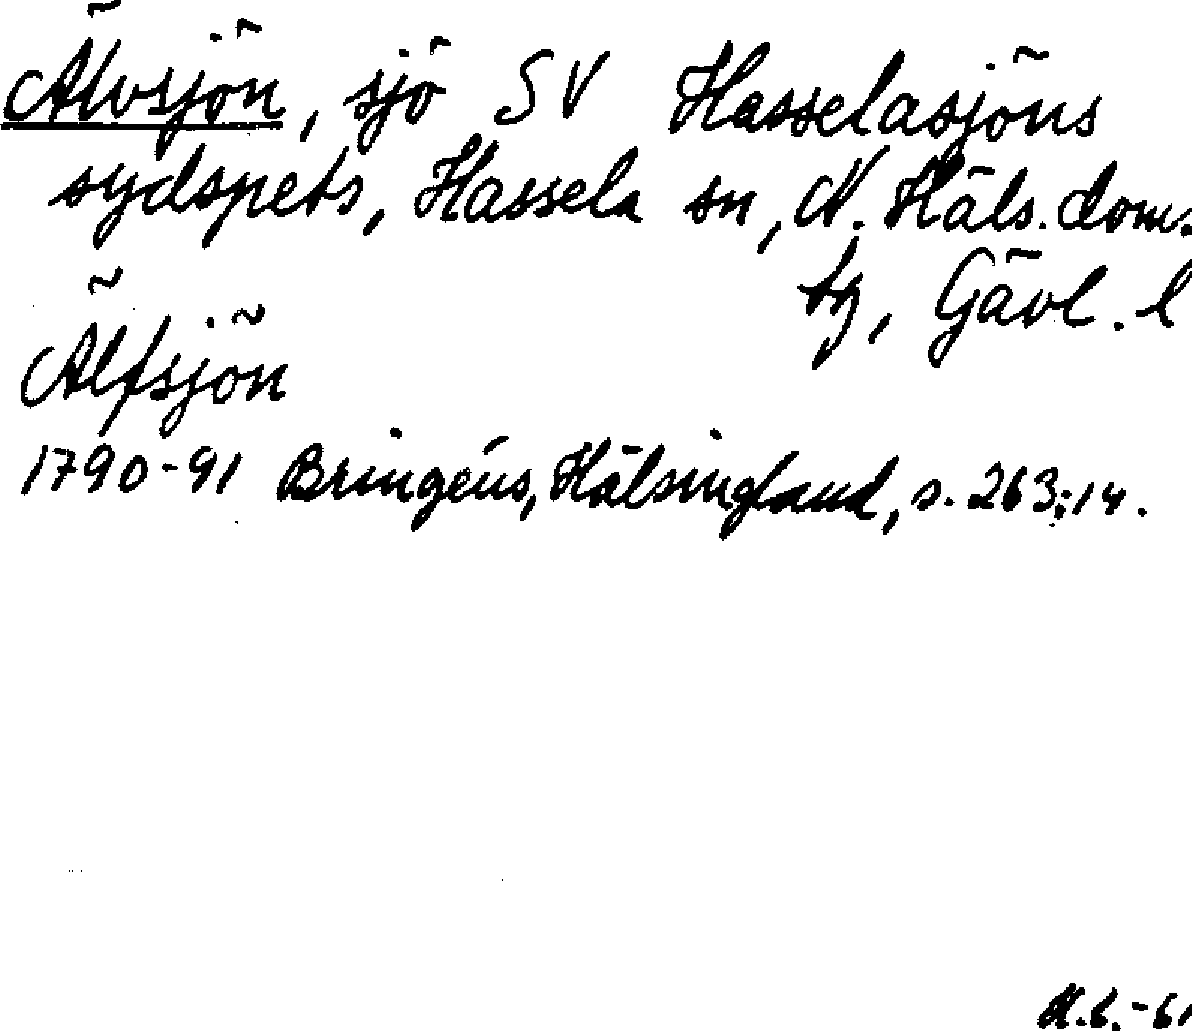 Älvsjön, sjö SV Hasselasjöns
sydspets, Hassela sn, N. Häls. doms.
tg, Gävl. l
Älfsjön
1790-91 Bringéus, Hälsingland, s. 263; 14.
-61